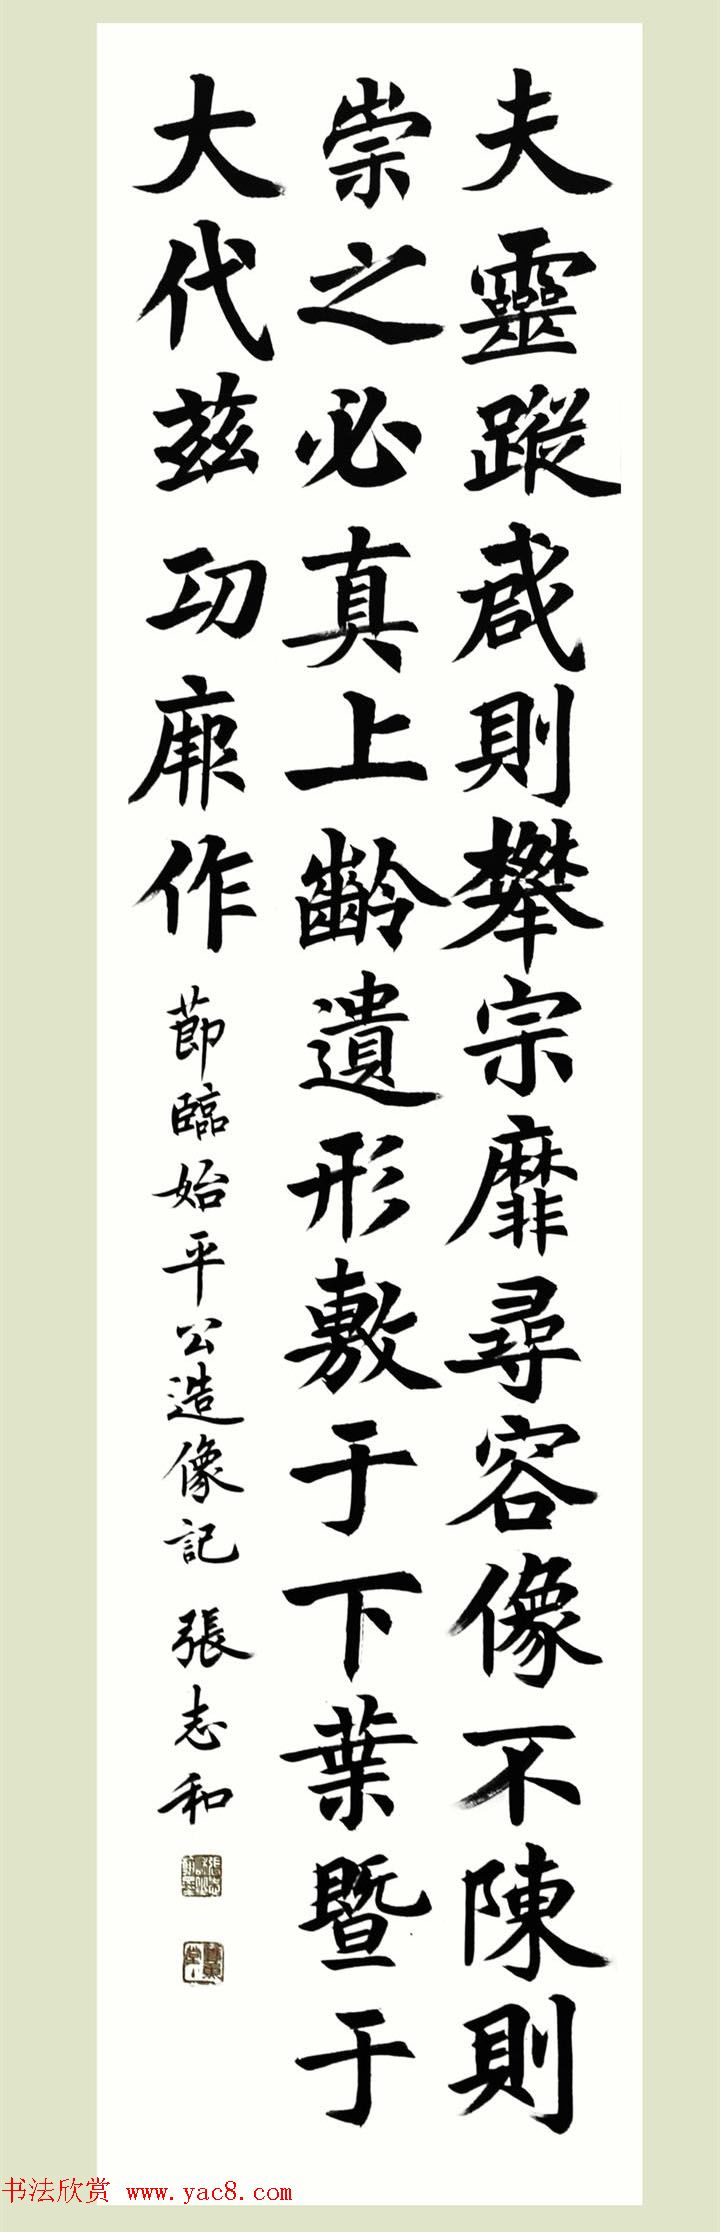 夫靈蹤則攀宗靡尋容像不陳則
崇之必真上齡遺形敷于下葉暨于
大代茲功厥作
節臨始平公造像記 張志和
书法欣赏 www.yac8.com